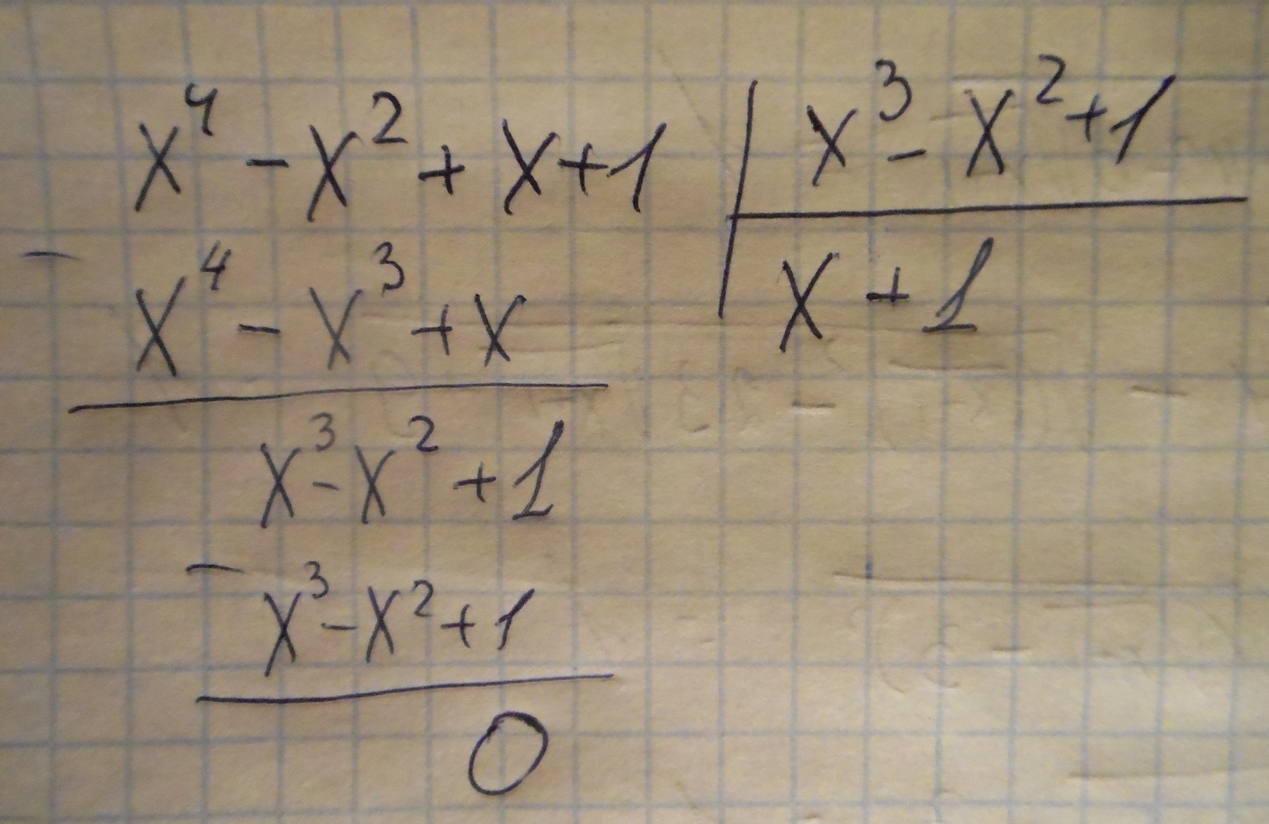 x⁴ - x² + x + 1 | x³ - x² + 1
- x⁴ - x³ + x | x + 1
x³ - x² + 1
- x³ - x² + 1
0